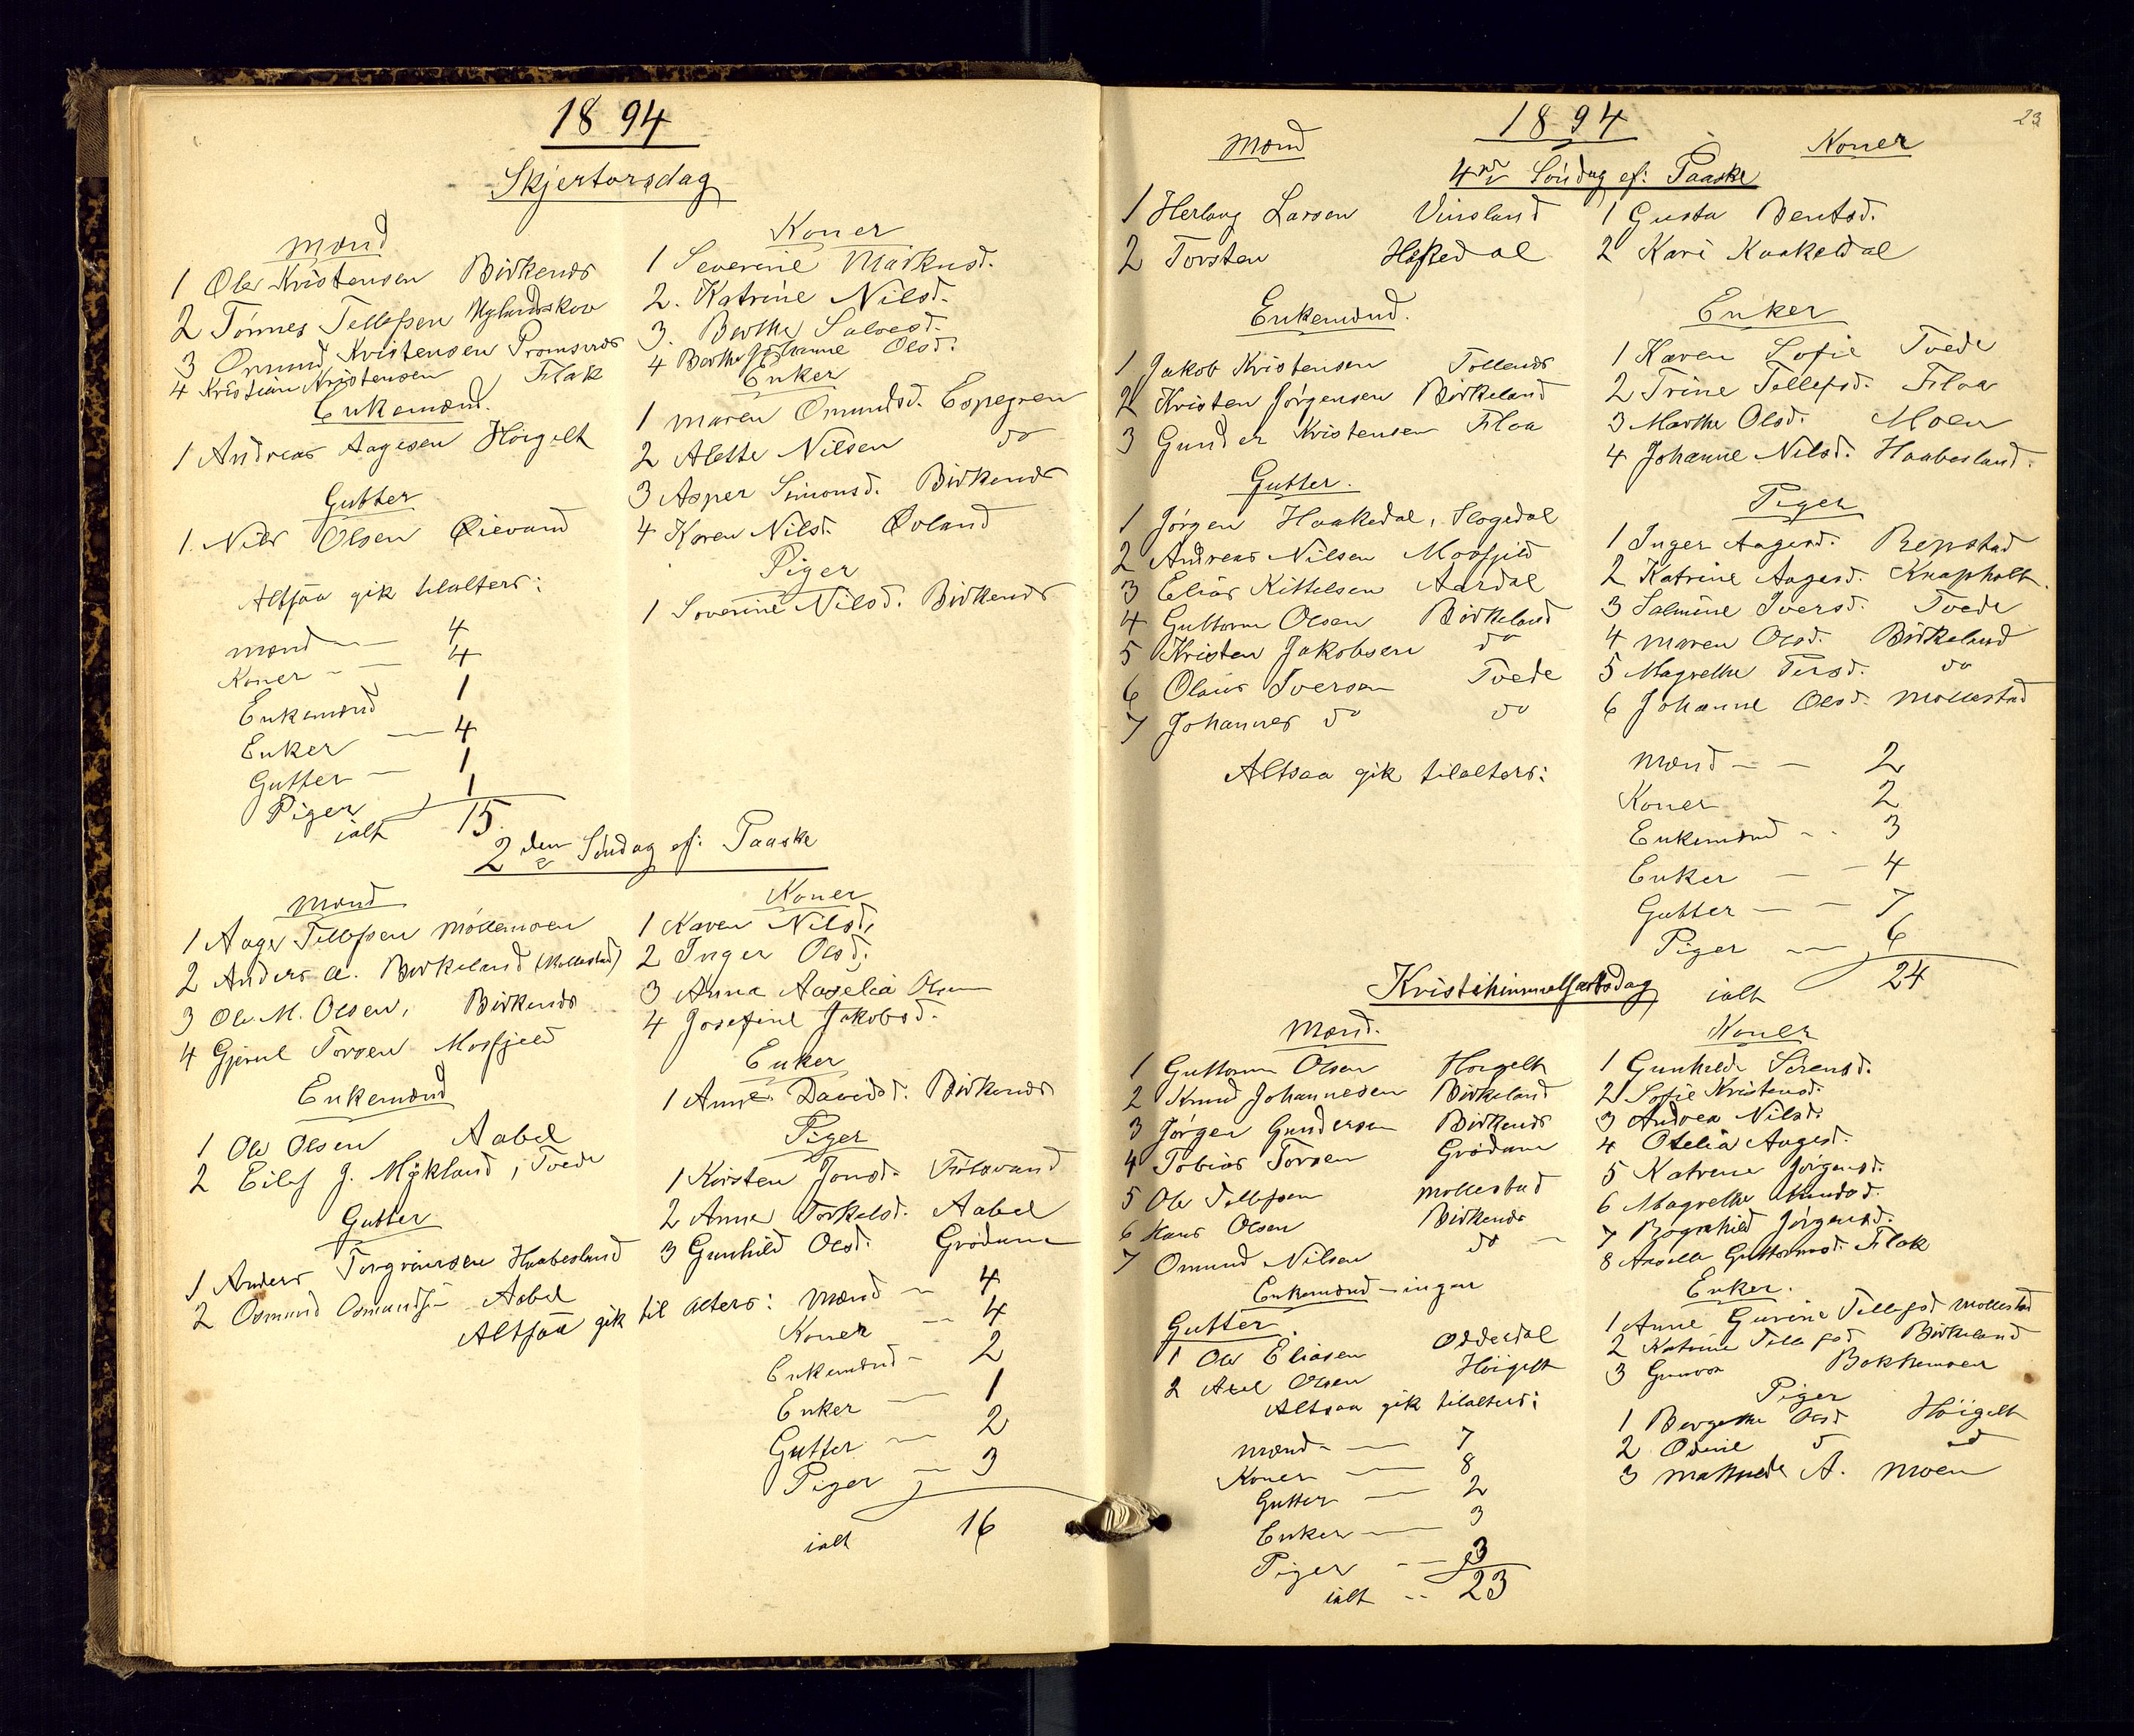 1894
Skjertorsdag
Mænd
1 Ole Kristensen Birkenes
2 Tönnes Tellefsen
3 Omund Kristensen
4 Kristian Kristensen Flak
Enkemænd.
1 Andreas Aagesen Hörgelt
Gutter
1. Nils Olsen Øievand
Altsaa gik tilalters:
Mænd — 4
Koner - — 4
Enkemænd 1
Enker — 4
Gutter — 1
Piger 1
ialt 15
Koner
1 Severine Markusd.
2. Katrine Nilsd.
3. Berthe Salvesd.
4 Berthe Johanne Olsd.
Enker
1 Maren Omundsd. Espegren
2 Alette Nilsen do
3 Asper Simonsd. Birkenes
4 Karen Nilsd. Øvland
Piger
1 Severine Nilsd. Birkenes
2den Söndag ef: Paaske
Mænd
1 Aage Tellefsen Möllemoen
2 Anders A. Birkeland (Mollestad)
3 Ole M. Olsen, Birkenes
4 Gjerul Torsen Mosfjeld
Enkemænd
1 Ole Olsen Aabel
2 Eilef J. Mykland, Tvede
Gutter
1 Anders Torgrimsen Haabesland
2 Osmund Osmundsen Aabel
Koner
1 Karen Nilsd.
2 Inger Olsd.
3 Anna Olsen
4 Josefine Jakobsd.
Enker
1 Anne Davidsd. Birkenes
Piger
1 Kirsten Jonsd.
2 Anne Torkelsd. Aabel
3 Gunhild Olsd. Grödum
Altsaa gik til alters: Mænd — 4
Koner — 4
Enkemænd - 2
Enker — 1
Gutter — 2
Piger — 3
ialt 16
23
1894
4de Söndag ef: Paaske
Mænd
1 Herlaug Larsen Vinsland
2 Torsten
Koner
1 Gusta Bentsd.
2 Kari
Enkemænd.
1 Jakob Kristensen Tollenes
2 Kristen Jörgensen Birkeland
3 Gunder Kristensen Flaa
Enker
1 Karen Sofie Tvede
2 Trine Tellefsd. Flaa
3 Marthe Olsd. Moen
4 Johanne Nilsd. Haabesland.
Gutter.
1 Jörgen Haakedal,
2 Andreas Nilsen Mosfjeld
3 Elias Kittelsen Aardal
4 Guttorm Olsen Birkeland
5 Kristen Jakobsen do
6 Olaus Iversen Tvede
7 Johannes do do
Piger
1 Inger Aagesd. Repstad
2 Katrine Aagesd. Knapholt.
3 Salmine Iversd. Tvede
4 Maren Olsd. Birkeland
5 Magrethe Tersd. do
6 Johanne Olsd. Mollestad
Altsaa gik tilalters:
Mænd - — 2
Koner 2
Enkemænd - - 3
Enker — — 4
Gutter — — 7
Piger — 6
ialt 24
Kristihimmelfartsdag
Mænd.
1 Guttorm Olsen Hörgelt
2 Knud Johannesen Birkeland
3 Jörgen Gundersen Birkenes
4 Tobias Torsen Grödum
5 Ole Tellefsen Mollestad
6 Hans Olsen Birkenes
7 Omund Nilsen do —
Enkemænd — ingen
Gutter.
1 Ole Eliasen Oddersdal
2 Axel Olsen Höigelt
Altsaa gik tilalters:
Mænd - — 7
Koner — 8
Gutter — 2
Enker — 3
Piger - — 3
ialt -- 23
Koner
1 Gunhilde Sörensd.
2 Sofie Kristensd.
3 Andrea Nilsd.
4 Otelia Aagesd.
5 Katrine Jörgensd.
6 Magrethe Knudsd.
7 Jörgensd.
8 Guttormsd. Flak
Enker.
1 Anne Gurine Tellefsd Mollestad
2 Katrine Tellefsd Birkeland
3
Piger
1 Bergethe Olsd Höigelt
2 Odine d do
3 Mathilde A. Moen